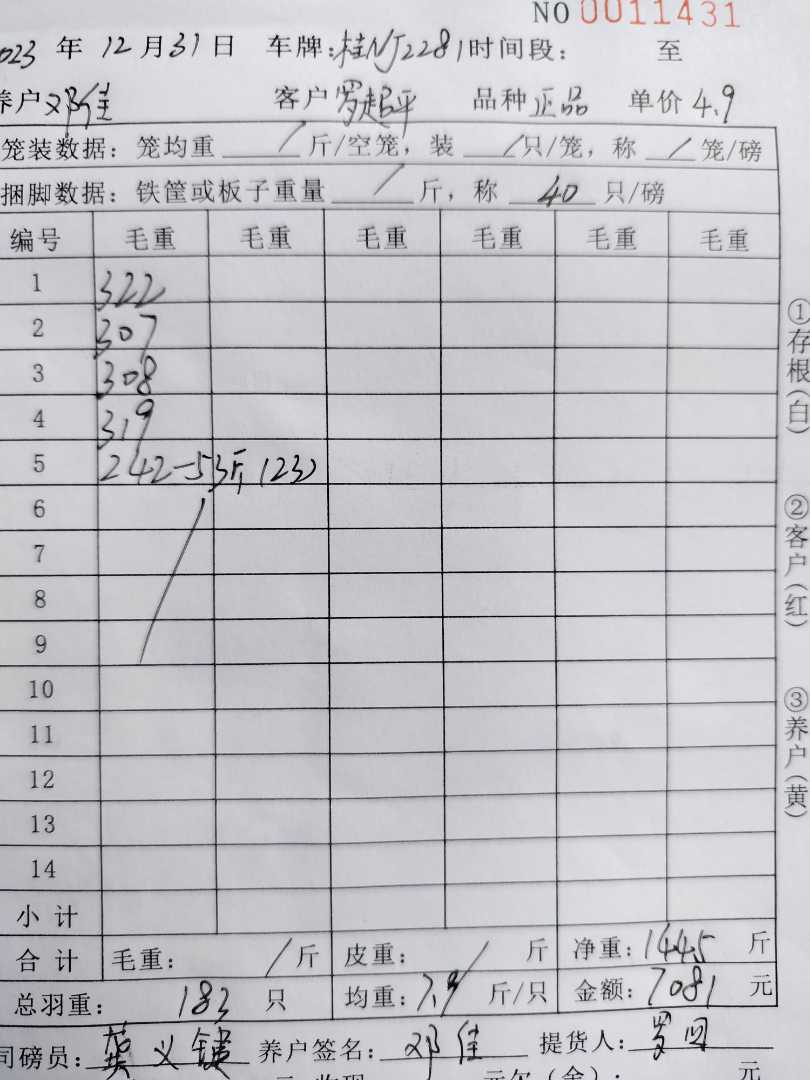 NO 0011431
2023 年 12 月 31 日 车牌:桂NJ2281 时间段: 至
养户 邓佳 客户 罗超平 品种 正品 单价 4.9
笼装数据: 笼均重 / 斤/空笼, 装 / 只/笼, 称 / 笼/磅
捆脚数据: 铁筐或板子重量 / 斤, 称 40 只/磅
编号 毛重 毛重 毛重 毛重 毛重 毛重
1 322
2 307
3 308
4 319
5 242-5斤(23)
6
7
8
9
10
11
12
13
14
小计
合计 毛重: / 斤 皮重: / 斤 净重: 1445 斤
总羽重: 183 只 均重: 7.9 斤/只 金额: 7081 元
司磅员: 义 养户签名: 邓佳 提货人: 罗
元 收现 元欠(余): 元
①存根(白)
②客户(红)
③养户(黄)